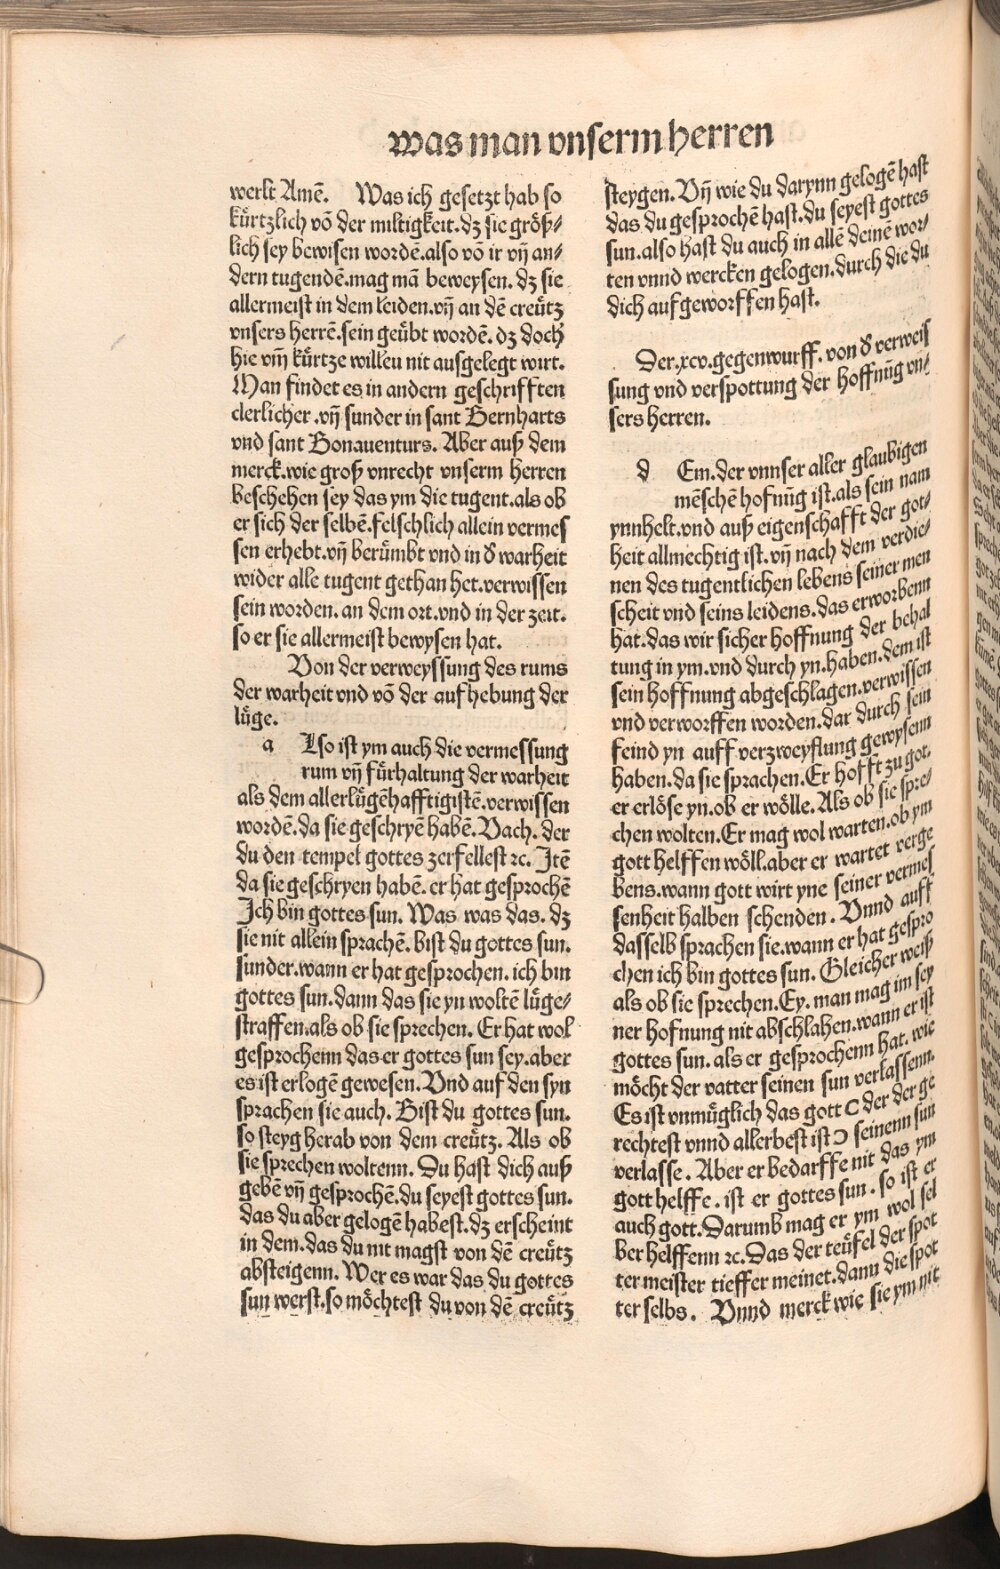 was man vnserm herren
werlt Amē. Was ich gesetzt hab so
kürtzlich vō der miltigkeit.dz sie gröſz⸗
lich sey bewisen wordē.also vō ir vñ an⸗
dern tugendē.mag mā beweysen. dz sie
allermeist in dem leiden.vñ an dē creütz
vnsers herrē.sein geübt wordē. dz doch
hie vm̄ kürtze willeu nit ausgelegt wirt.
Man findet es in andern geschrifften
clerlicher.vñ sunder in sant Bernharts
vnd sant Bonauenturs. Aber auſz dem
merck.wie groſz vnrecht vnserm herren
beschehen sey das ym die tugent.als ob
er sich der selbē.felschlich allein vermes
sen erhebt.vñ berümbt vnd in d̕ warheit
wider alle tugent gethan het.verwissen
sein worden. an dem ort.vnd in der zeit.
so er sie allermeist bewysen hat.
Von der verweyssung des rums
der warheit vnd vō der auf hebung der
lüge.
a Lso ist ym auch die vermessung
rum vñ fürhaltung der warheit
als dem allerlügēhafftigistē.verwissen
wordē.da sie geschryē habē. Vach. der
du den tempel gottes zerfellest ꝛc. Itē
da sie geschryen habē. er hat gesprochē
Ich bin gottes sun. Was was das. dz
sie nit allein sprachē. bist du gottes sun.
sunder.wann er hat gesprochen. ich bin
gottes sun.dann das sie yn woltē lüge⸗
straffen.als ob sie sprechen. Er hat wol
gesprochenn das er gottes sun sey.aber
es ist erlogē gewesen. Vnd auf den syn
sprachen sie auch. Bist du gottes sun.
so steyg herab von dem creütz. Als ob
sie sprechen woltenn. Du hast dich auſz
gebē vñ gesprochē.du seyest gottes sun.
das du aber gelogē habest.dz erscheint
in dem.das du nit magst von dē creütz
absteigenn. Wer es war das du gottes
sun werst.so möchtest du von dē creütz
steygen. Vñ wie du darynn gelogē hast
das du gesprochē hast.du seyest gottes
sun.also hast du auch in allē deinē wor⸗
ten vnnd wercken gelogen.durch die du
dich aufgeworffen hast.
Der.xcv.gegenwurff. von d̕ verweis
sung vnd verspottung der hoffnūg vn⸗
sers herren.
d Em.der vnnser aller glaubigen
mēschē hofnūg ist.als sein nam
ynnhelt.vnd auſz eigenschafft der got⸗
heit allmechtig ist.vñ nach dem verdie⸗
nen des tugentlichen lebens seiner men
scheit vnd seins leidens.das erworbenn
hat.das wir sicher hoffnung der behal
tung in ym.vnd durch yn.haben.dem ist
sein hoffnung abgeschlagen.verwissen
vnd verworffen worden.dar durch sein
feind yn auff verzweyflung gewysenn
haben.da sie sprachen. Er hofft zu got.
er erlöse yn.ob er wölle. Als ob sie spre⸗
chen wolten. Er mag wol warten.ob ym
gott helffen wöll.aber er wartet verge
bens.wann gott wirt yne seiner vermes
senheit halben schenden. Vnnd auff
dasselb sprachen sie.wann er hat gespro
chen ich bin gottes sun. Gleicher weiſz
als ob sie sprechen. Ey. man mag im sey
ner hofnung nit abschlahen.wann er ist
gottes sun. als er gesprochenn hat. wie
möcht der vatter seinen sun verlassenn.
Es ist vnmüglich das gott C der der ge
rechtest vnnd allerbest ist Ɔ seinenn sun
verlasse. Aber er bedarffe nit das ym
gott helffe. ist er gottes sun. so ist er
auch gott. Darumb mag er ym wol sel
ber helffenn ꝛc. Das der teüfel der spot
ter meister tieffer meinet.dann die spot
ter selbs. Vnnd merck wie sie ym nit